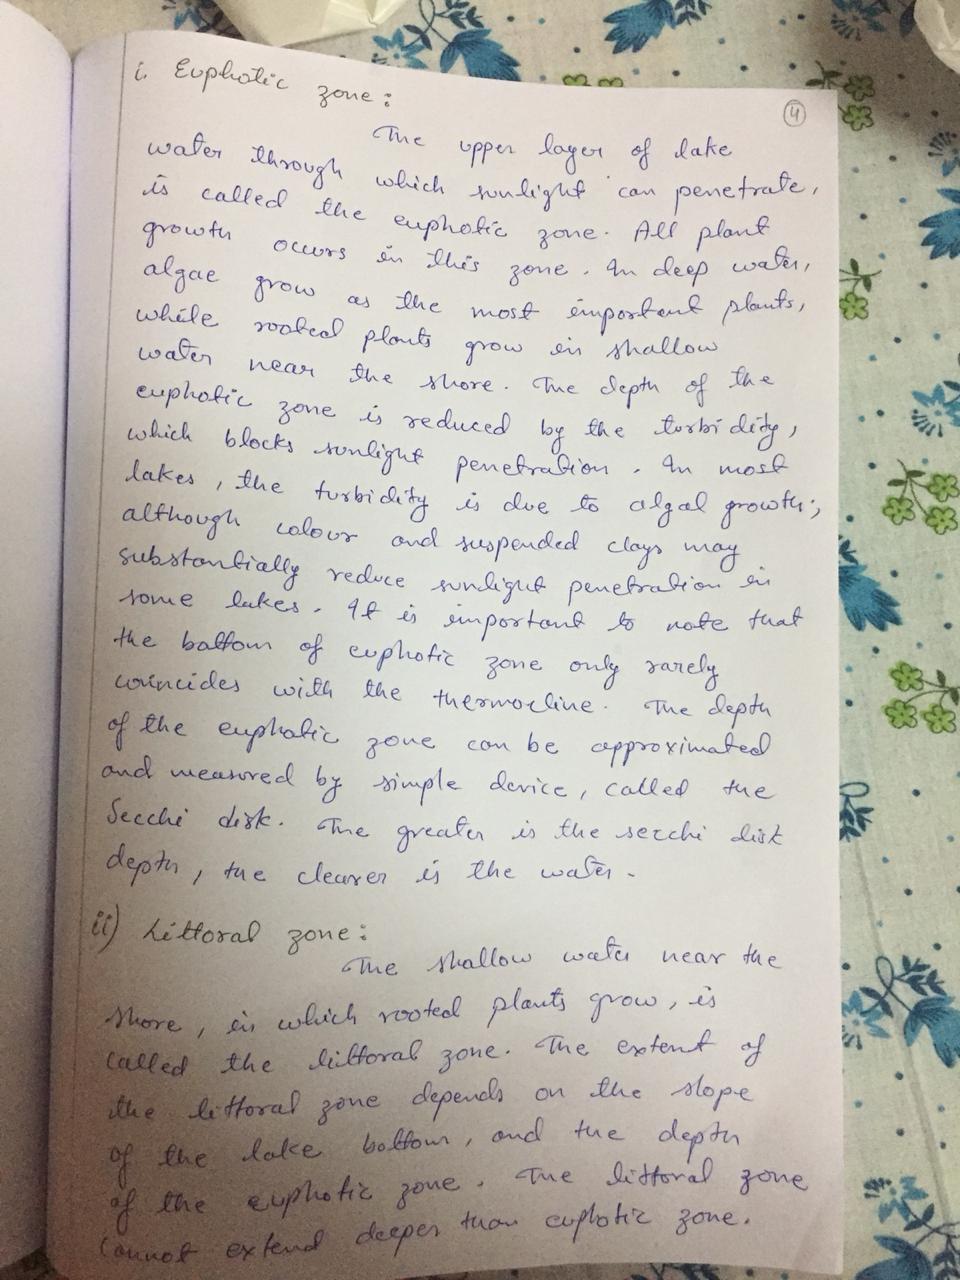 i. Euphotic zone:
4
The upper layer of lake
water through which sunlight can penetrate,
is called the euphotic zone. All plant
growth occurs in this zone. In deep water,
algae grow as the most important plants,
while rooted plants grow in shallow
water near the shore. The depth of the
euphotic zone is reduced by the turbidity,
which blocks sunlight penetration. In most
lakes, the turbidity is due to algal growth;
although colour and suspended clays may
substantially reduce sunlight penetration in
some lakes. It is important to note that
the bottom of euphotic zone only rarely
coincides with the thermocline. The depth
of the euphotic zone can be approximated
and measured by simple device, called the
Secchi disk. The greater is the secchi disk
depth, the clearer is the water.
ii) Littoral zone:
The shallow water near the
shore, in which rooted plants grow, is
called the littoral zone. The extent of
the littoral zone depends on the slope
of the lake bottom, and the depth
of the euphotic zone. The littoral zone
cannot extend deeper than euphotic zone.